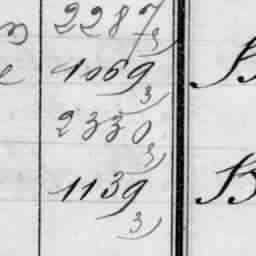 2287
3)
1069
3)
2330
3)
1139
3)